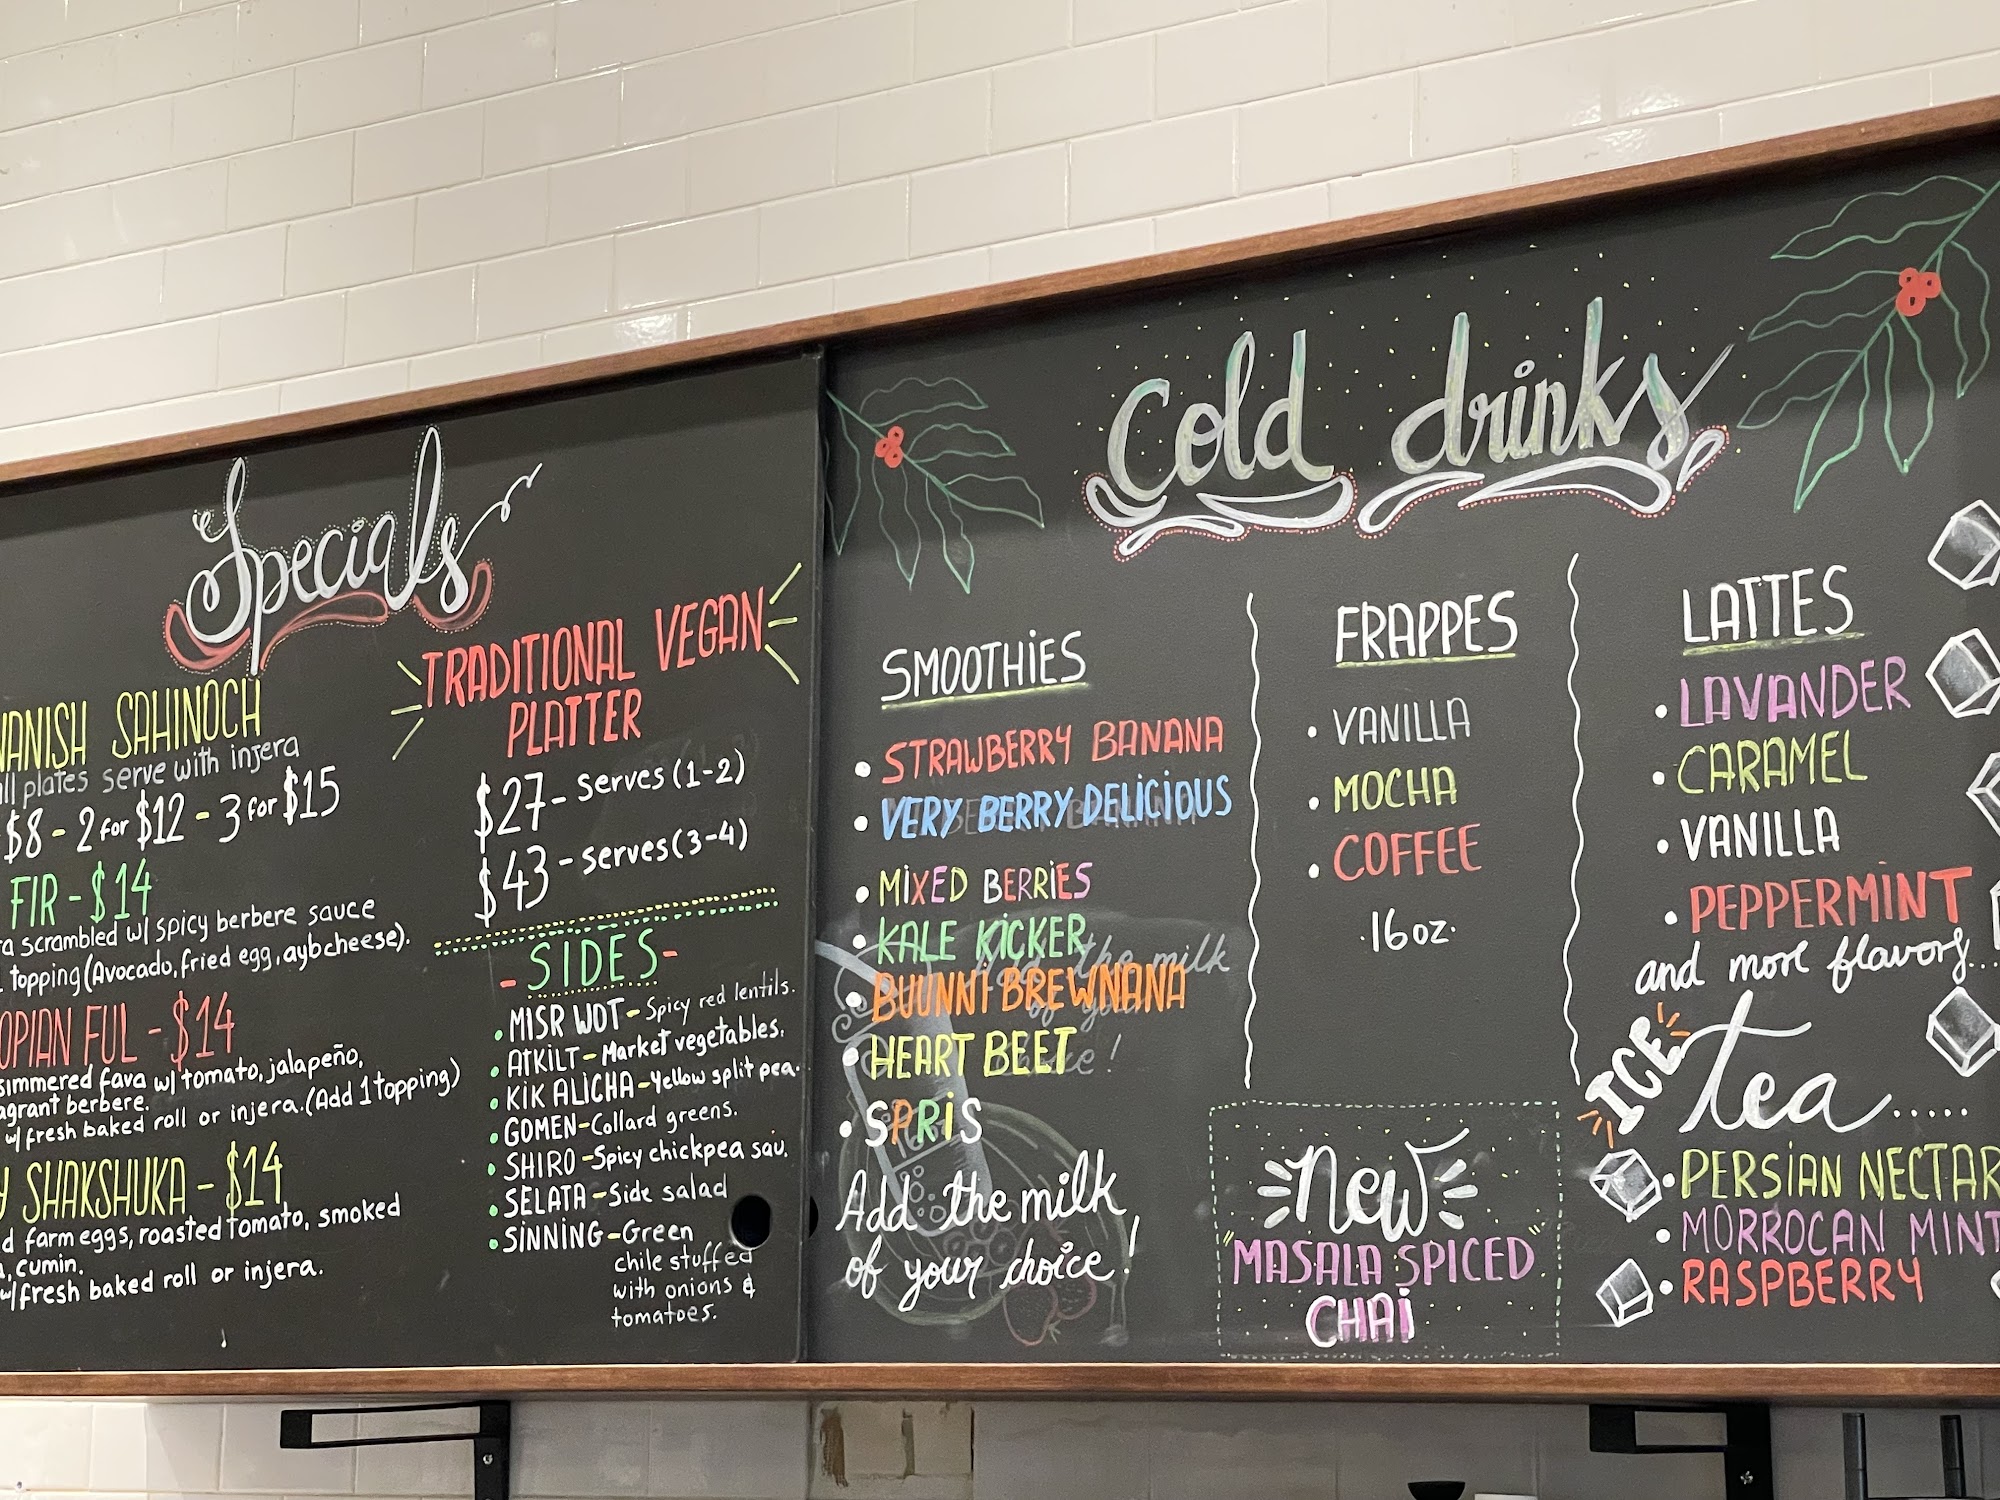 Specials
VANISH SAHINOCH
all plates serve with injera
$8 - 2 for $12 - 3 for $15
FIR - $14
scrambled w/ spicy berbere sauce
topping (Avocado, fried egg, aybcheese).
OPIAN FUL - $14
simmered fava w/ tomato, jalapeño,
agrant berbere.
w/ fresh baked roll or injera. (Add 1 topping)
SHAKSHUKA - $14
d farm eggs, roasted tomato, smoked
, cumin.
w/ fresh baked roll or injera.
TRADITIONAL VEGAN
PLATTER
$27 - serves (1-2)
$43 - serves (3-4)
- SIDES -
• MISR WOT - Spicy red lentils.
• ATKILT - Market vegetables.
• KIK ALICHA - Yellow split pea.
• GOMEN - Collard greens.
• SHIRO - Spicy chickpea sau.
• SELATA - Side salad
• SINNING - Green
chile stuffed
with onions &
tomatoes.
Cold drinks
SMOOTHIES
• STRAWBERRY BANANA
• VERY BERRY DELICIOUS
• MIXED BERRIES
• KALE KICKER
• BUUNNI BREWNANA
• HEART BEET
• SPRIS
Add the milk
of your choice!
FRAPPES
• VANILLA
• MOCHA
• COFFEE
·16oz·
new
"MASALA SPICED"
CHAI
LATTES
• LAVANDER
• CARAMEL
• VANILLA
• PEPPERMINT
and more flavors...
ICE tea.....
• PERSIAN NECTAR
• MORROCAN MINT
• RASPBERRY